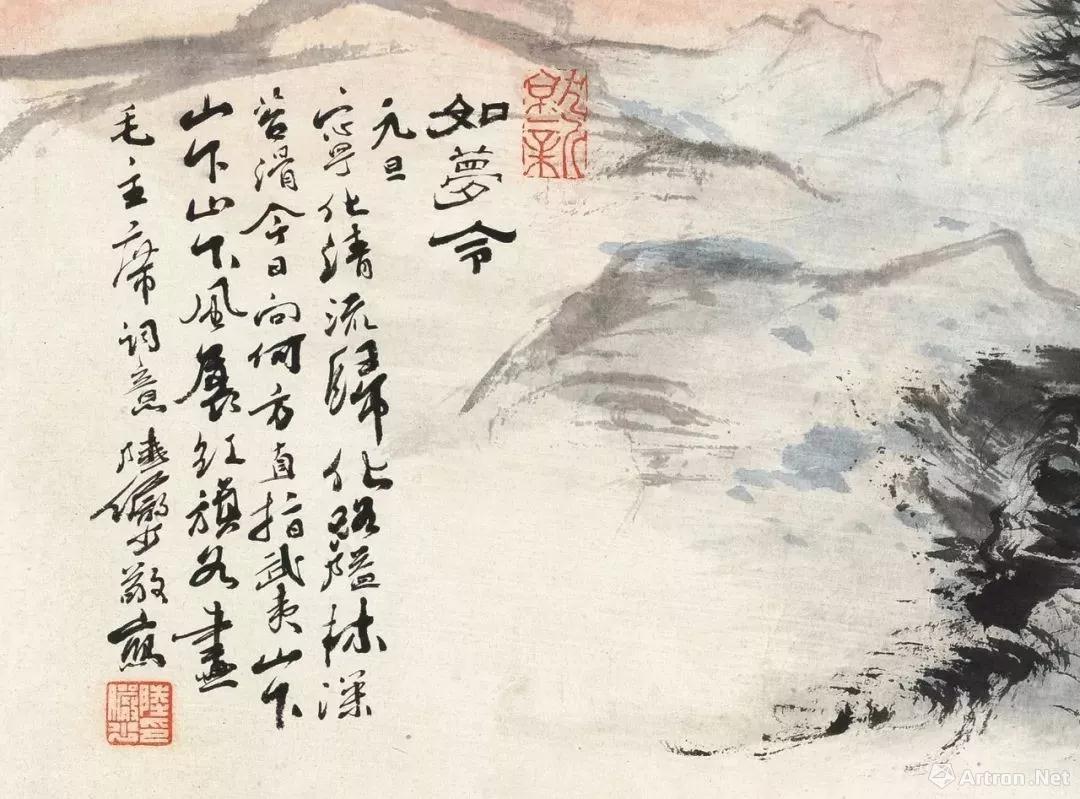 如夢令
元旦
寧化清流歸化路隘林深
苔滑今日向何方直指武夷山下
山下山下風展紅旗如畫
毛主席詞意陸儼少敬寫
就新
陸印儼少
Artron.Net